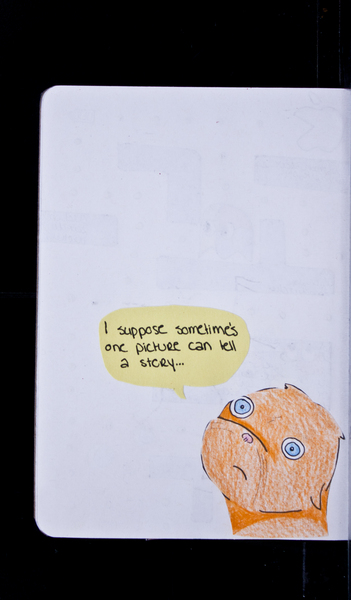 I suppose sometime's
one picture can tell
a story...